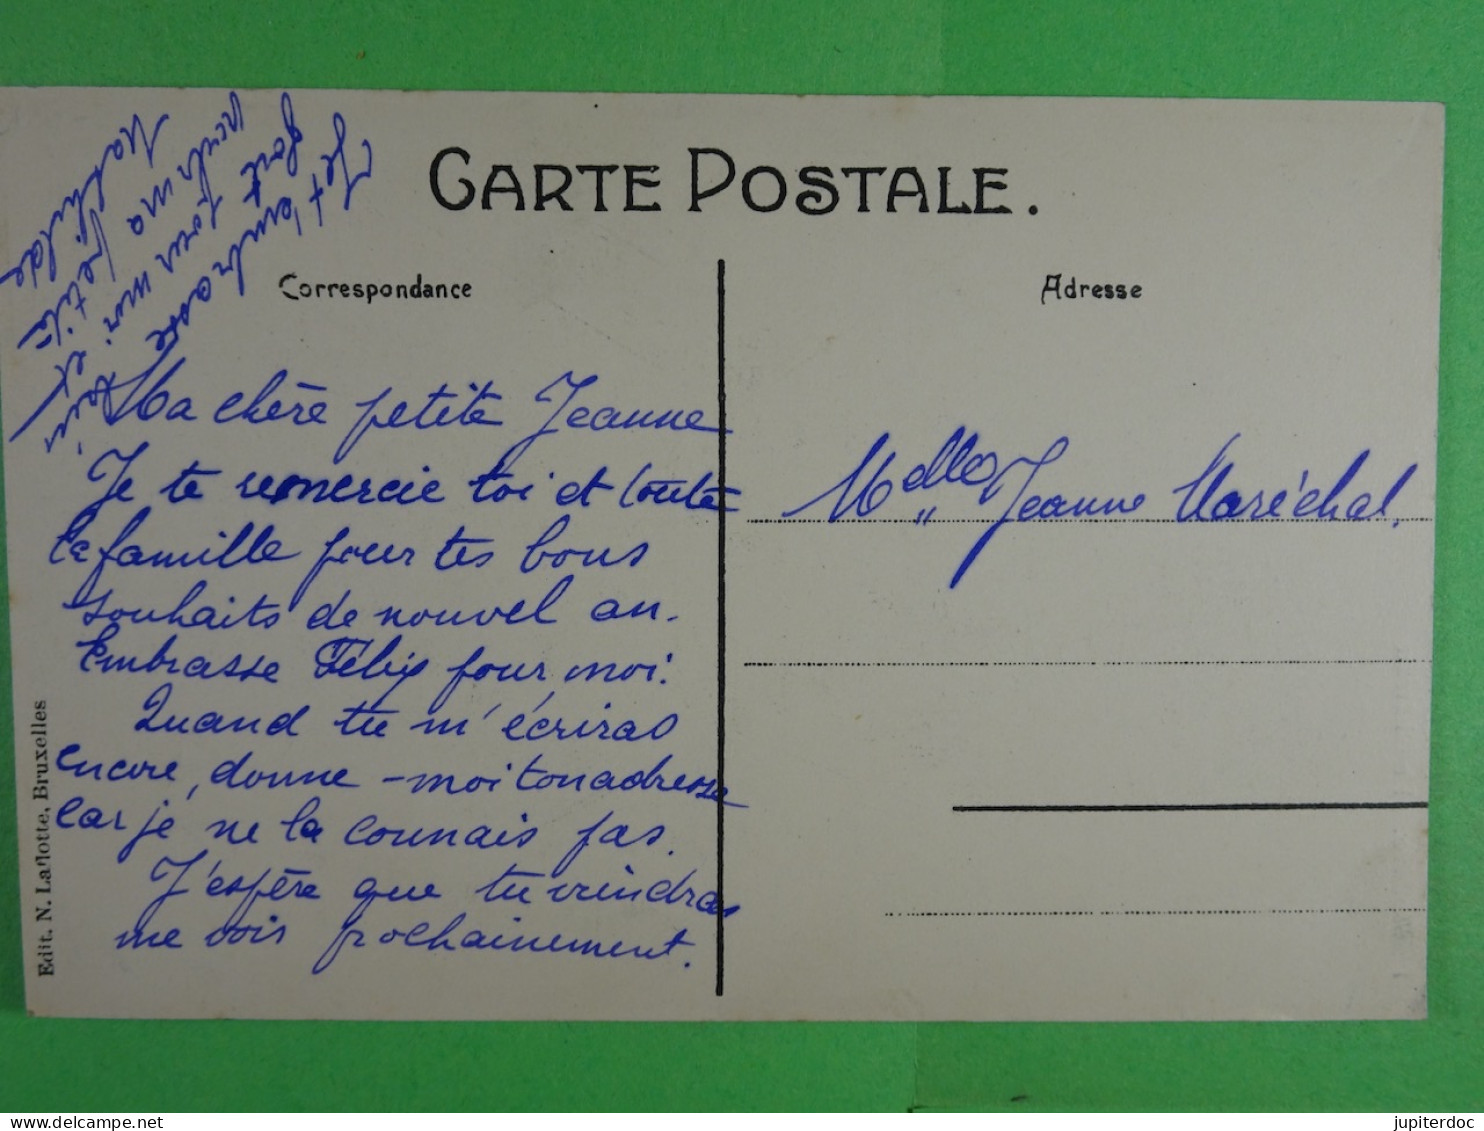 CARTE POSTALE.
Correspondance
Adresse
Ma chère petite Jeanne
Je te remercie toi et toute
la famille pour tes bons
souhaits de nouvel an.
Embrasse Félix pour moi.
Quand tu m'écriras
encore, donne-moi ton adresse
car je ne la connais pas.
J'espère que tu viendras
me voir prochainement.
Je t'embrasse bien
fort pour moi et
pour ma petite
Mathilde
Melle Jeanne Maréchal.
Edit. N. Laflotte, Bruxelles
jupiterdoc